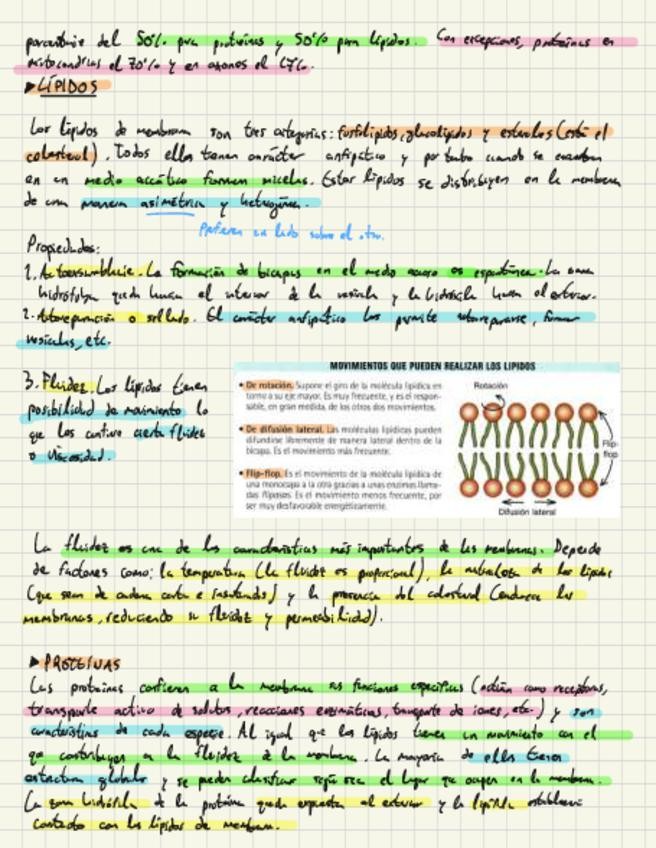 porcentaje del 50% para proteínas y 50% para lípidos. Con excepciones, proteínas en
mitocondrias el 70% y en axones el
▶LÍPIDOS
Los lípidos de membrana son tres categorías: fosfolípidos, glucolípidos y esteroles (está el
colesterol). Todos ellos tienen carácter anfipático y por tanto cuando se encuentran
en un medio acuático forman micelas. Estos lípidos se distribuyen en la membrana
de una manera asimétrica y heterogénea.
Prefieren un lado sobre el otro.
Propiedades:
1. Autoensamblaje. La formación de bicapas en el medio acuoso es espontánea. La zona
hidrófoba queda hacia el interior de la vesícula y la hidrófila hacia el exterior.
2. Autoreparación o sellado. El carácter anfipático les permite autorepararse, formar
vesículas, etc.
3. Fluidez. Los lípidos tienen
posibilidad de movimiento lo
que les confiere cierta fluidez
o viscosidad.
MOVIMIENTOS QUE PUEDEN REALIZAR LOS LIPIDOS
• De rotación. Supone el giro de la molécula lipídica en
torno a su eje mayor. Es muy frecuente, y es el respon-
sable, en gran medida, de los otros dos movimientos.
• De difusión lateral. Las moléculas lipídicas pueden
difundirse libremente de manera lateral dentro de la
bicapa. Es el movimiento más frecuente.
• Flip-flop. Es el movimiento de la molécula lipídica de
una monocapa a la otra gracias a unas enzimas llama-
das flipasas. Es el movimiento menos frecuente, por
ser muy desfavorable energéticamente.
Rotación
Flip-
flop
Difusión lateral
La fluidez es una de las características más importantes de las membranas. Depende
de factores como: la temperatura (la fluidez es proporcional), la naturaleza de los lípidos
(que sean de cadena corta e insaturados) y la presencia del colesterol (endurece las
membranas, reduciendo su fluidez y permeabilidad).
▶PROTEÍNAS
Las proteínas confieren a la membrana sus funciones específicas (actúan como receptores,
transporte activo de solutos, reacciones enzimáticas, transporte de iones, etc.) y son
características de cada especie. Al igual que los lípidos tienen un movimiento con el
que contribuyen a la fluidez de la membrana. La mayoría de ellas tienen
estructura globular y se pueden clasificar según sea el lugar que ocupen en la membrana.
La zona hidrófila de la proteína queda expuesta al exterior y la lipófila establece
contacto con los lípidos de membrana.